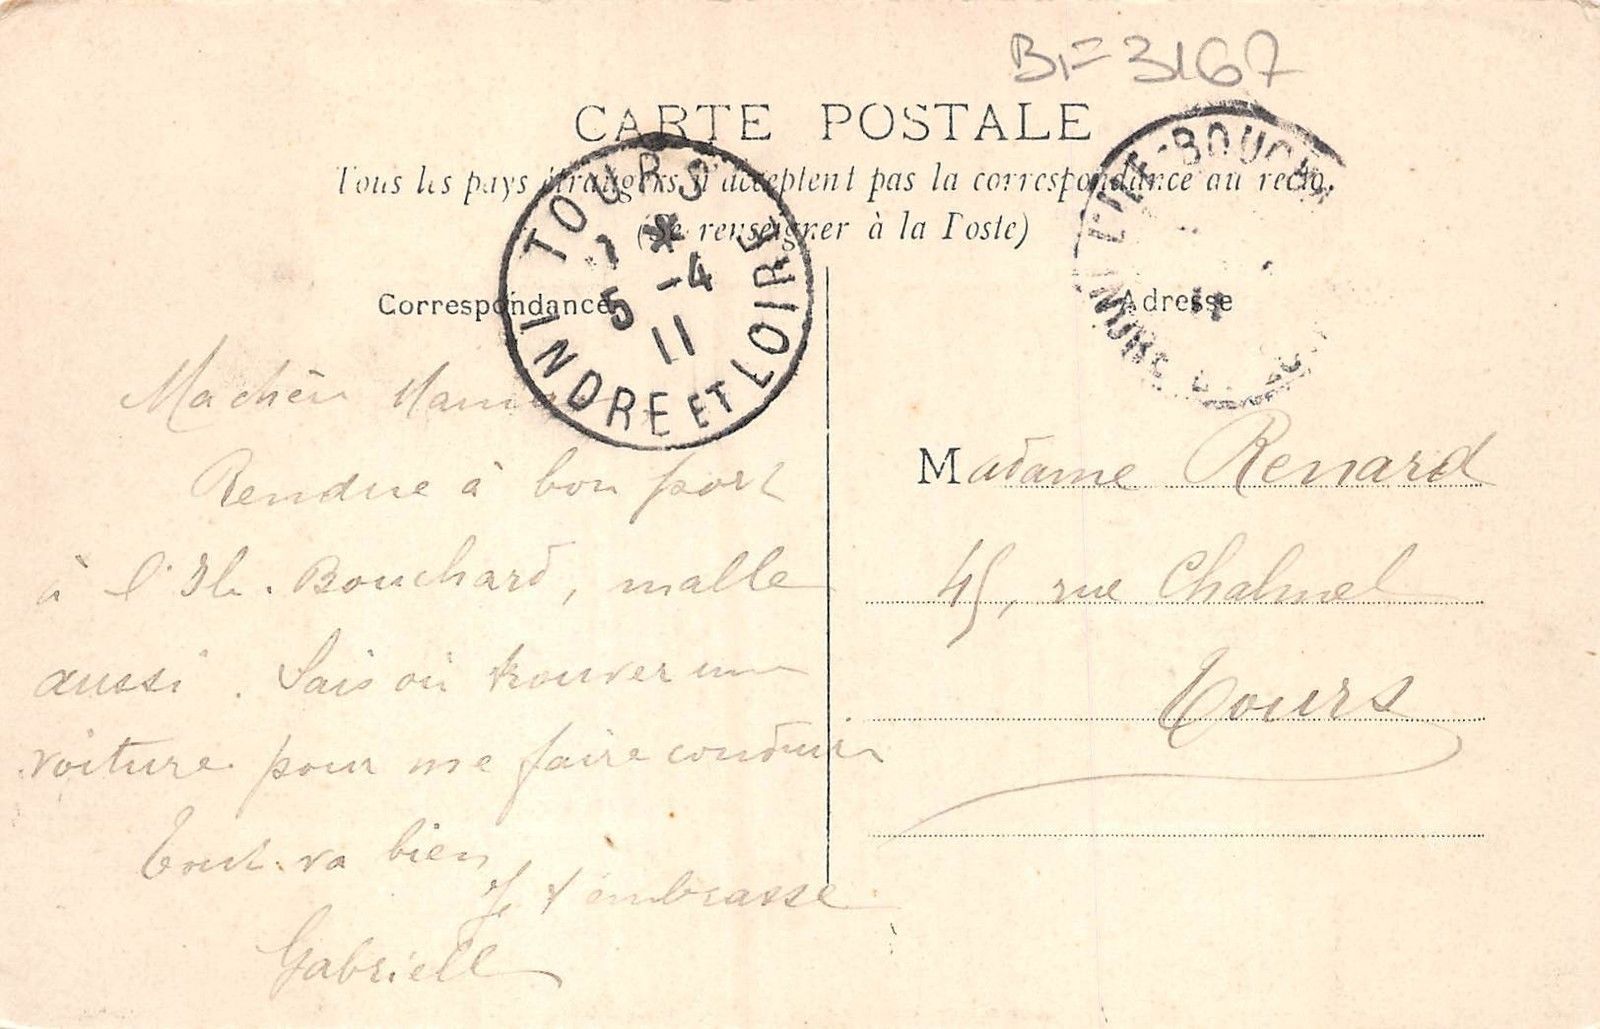 BF 3167
CARTE POSTALE
Tous les pays étrangers n'acceptent pas la correspondance au recto.
(Se renseigner à la Poste)
TOURS
5 -4
11
INDRE ET LOIRE
L'ILE-BOUCH
INDRE
Correspondance
Adresse
Ma chère Maman
Rendue à bon port
à l'Ile-Bouchard, malle
aussi. Sais où trouver une
voiture pour me faire conduire
Tout va bien
Je t'embrasse
Gabrielle
Madame Renard
45, rue Chalmel
Tours